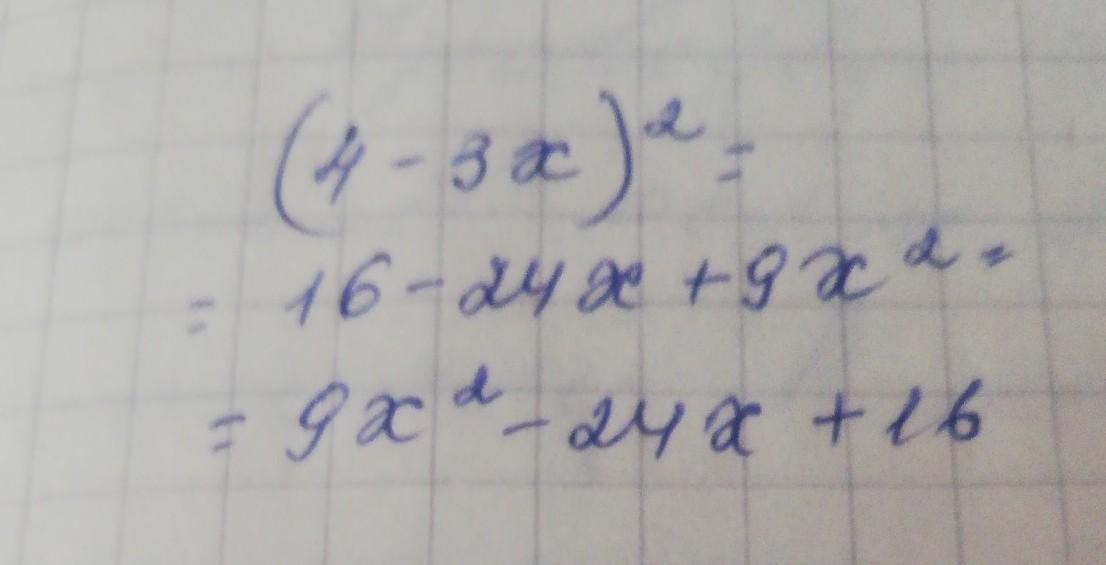 (4 - 3x)² =
= 16 - 24x + 9x² =
= 9x² - 24x + 16